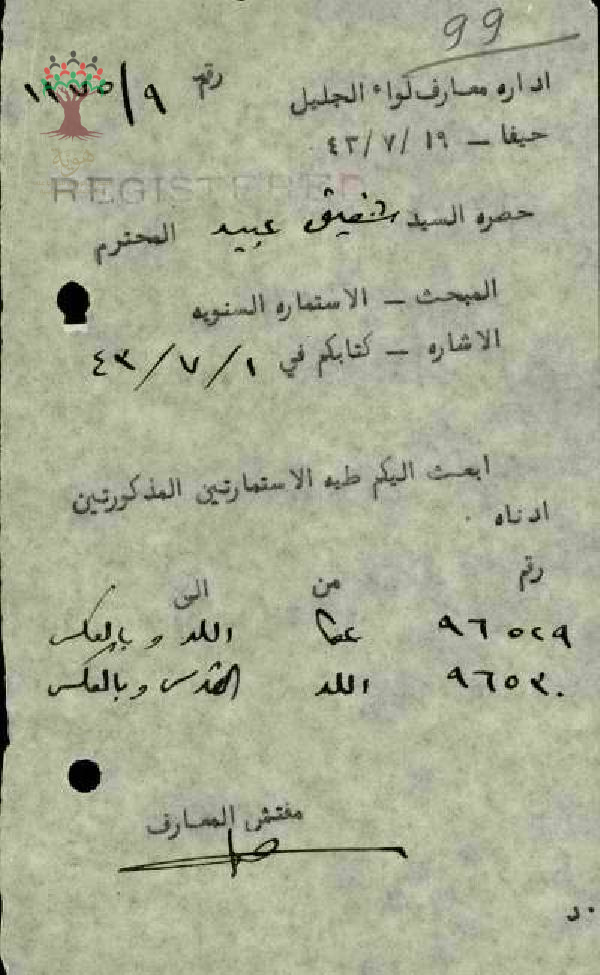 99
اداره معارف لواء الجليل رقم ٩/١١٧٥
حيفا – ١٩ /٧/ ٤٣
REGISTERED
حضره السيد شفيق عبيد المحترم
المبحث – الاستماره السنويه
الاشاره – كتابكم في ١/٧/٤٣
ابعث اليكم طيه الاستمارتين المذكورتين
ادناه .
رقم من الى
٩٦٥٢٩ عكا اللد وبالعكس
٩٦٥٣٠ اللد القدس وبالعكس
مفتش المعارف